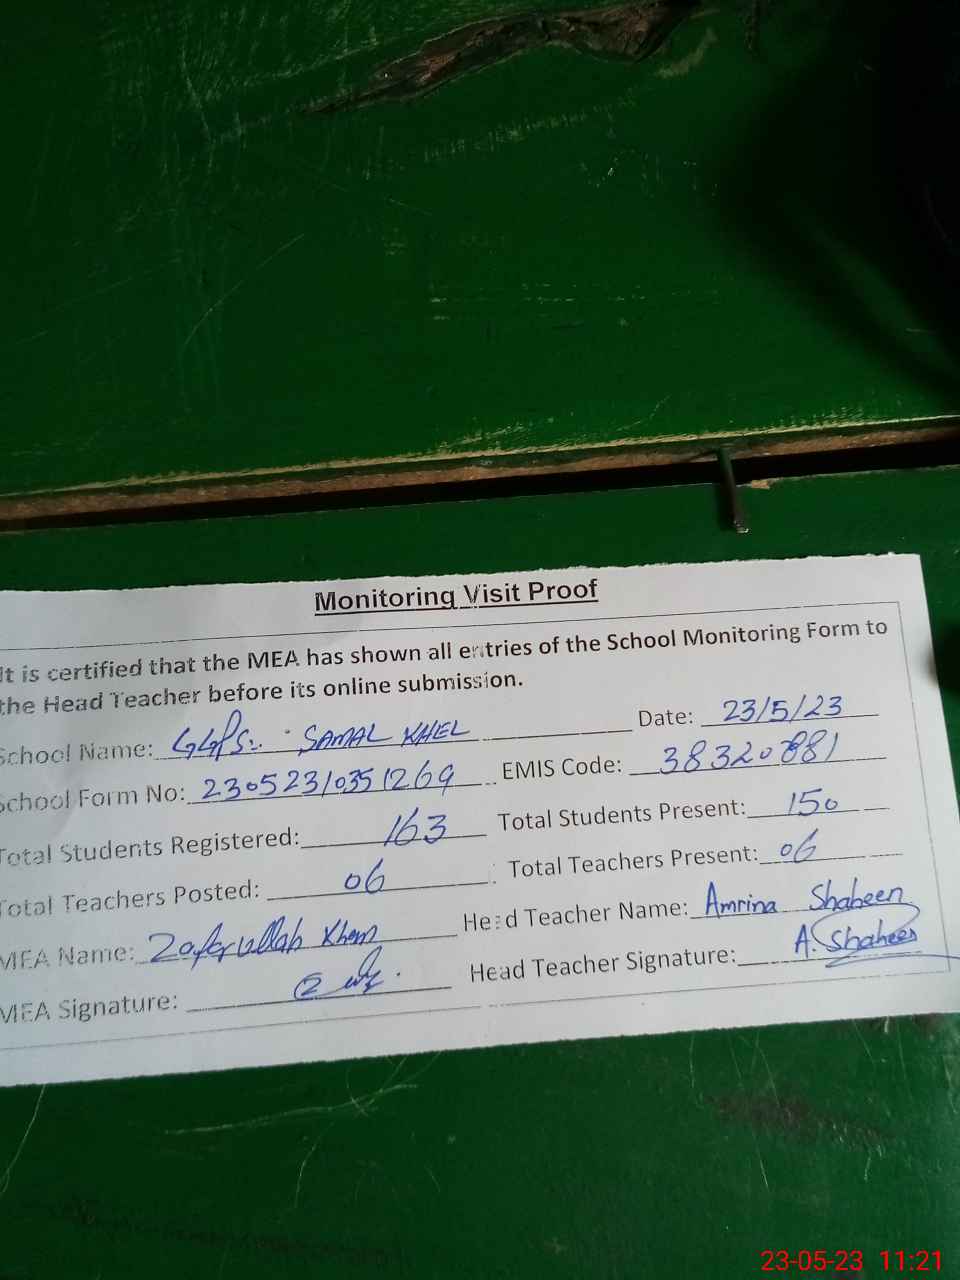 Monitoring Visit Proof
It is certified that the MEA has shown all entries of the School Monitoring Form to
the Head Teacher before its online submission.
School Name: GGPS: SAMAL KHEL Date: 23/5/23
School Form No: 230523/0351269 EMIS Code: 38320881
Total Students Registered: 163 Total Students Present: 150
Total Teachers Posted: 06 Total Teachers Present: 06
MEA Name: Zafarullah Khan Head Teacher Name: Amrina Shaheen
MEA Signature: Head Teacher Signature: A. Shaheen
23-05-23 11:21